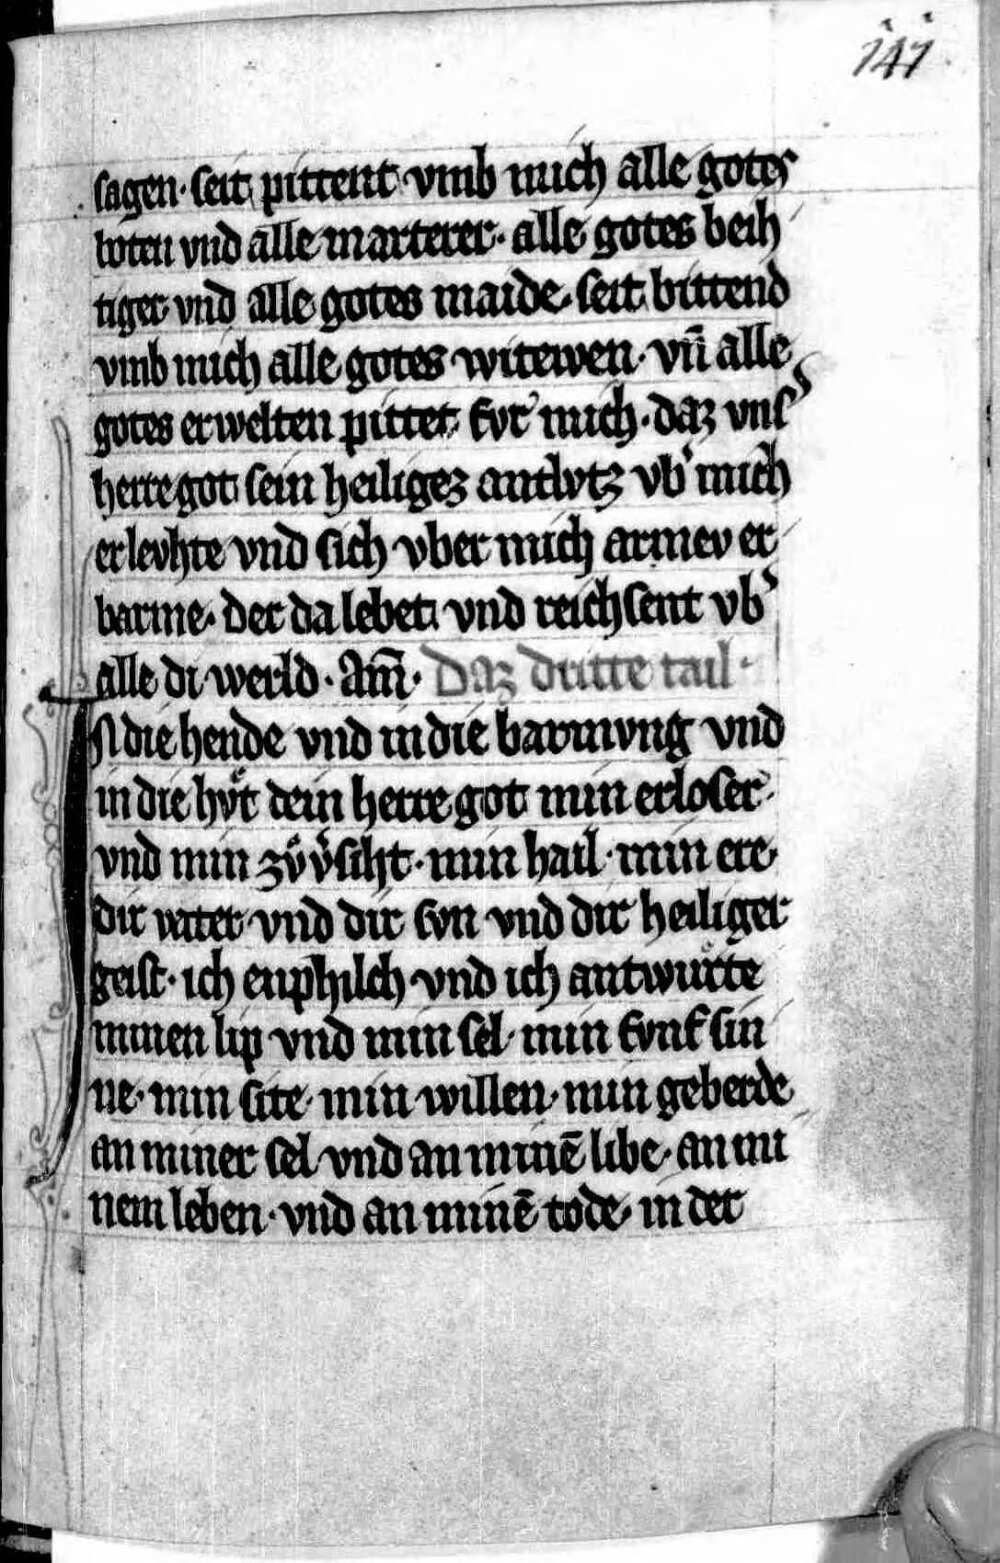 141
sagen· seit pittent vmb mich alle gotes
boten vnd alle marterer· alle gotes beih
tiger vnd alle gotes maide· seit bittend
vmb mich alle gotes witewen· vn̄ alle
gotes erwelten pittet fvr mich· daz vnsʼ
herre got sein heiligez antlvtz vbʼ mich
erlevhte vnd sich vber mich armev er
barme· der da lebet vnd reichsent vbʼ
alle di werld· Am̄· Daz dritte tail·
IN die hende vnd in die barmvng vnd
in die hvͦt dein herre got min erloser·
vnd min zvͦvͦsiht· min hail· min ere
dir vater vnd dir svn vnd dir heiliger
geist· ich enphilch vnd ich antwuͦrte
minen lip vnd min sel· min fvnf sin
ne· min site· min willen· min geberde
an miner sel vnd an minē libe· an mi
nem leben· vnd an minē tode· in der